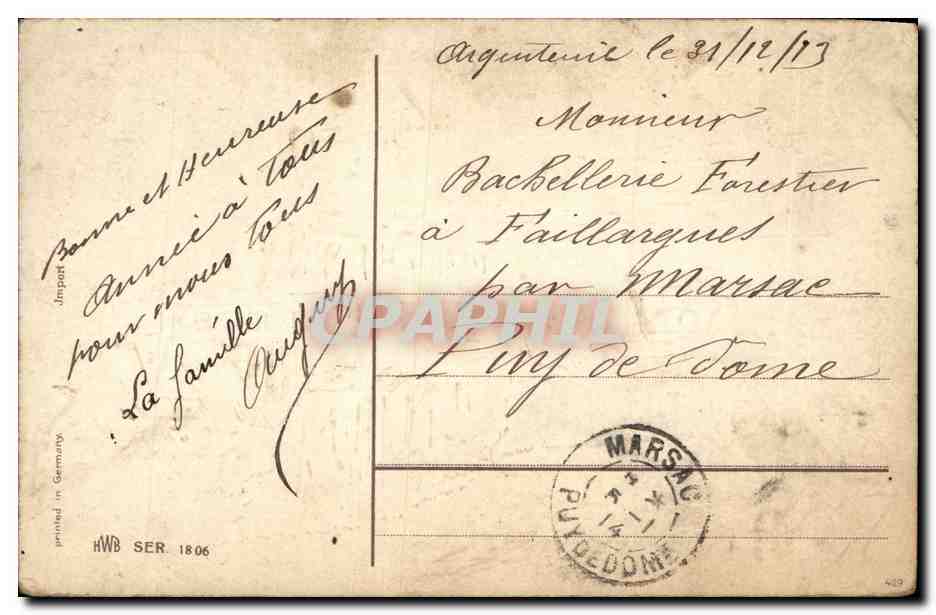 Argenteuil le 31/12/13
Monsieur
Bachellerie Forestier
à Faillargues
par Marsac
Puy de Dome
Bonne et Heureuse
Année à Tous
pour nous Tous
La famille
Import
printed in Germany.
HWB SER. 1806
MARSAC
PUY DE DOME
CPAPHIL
429